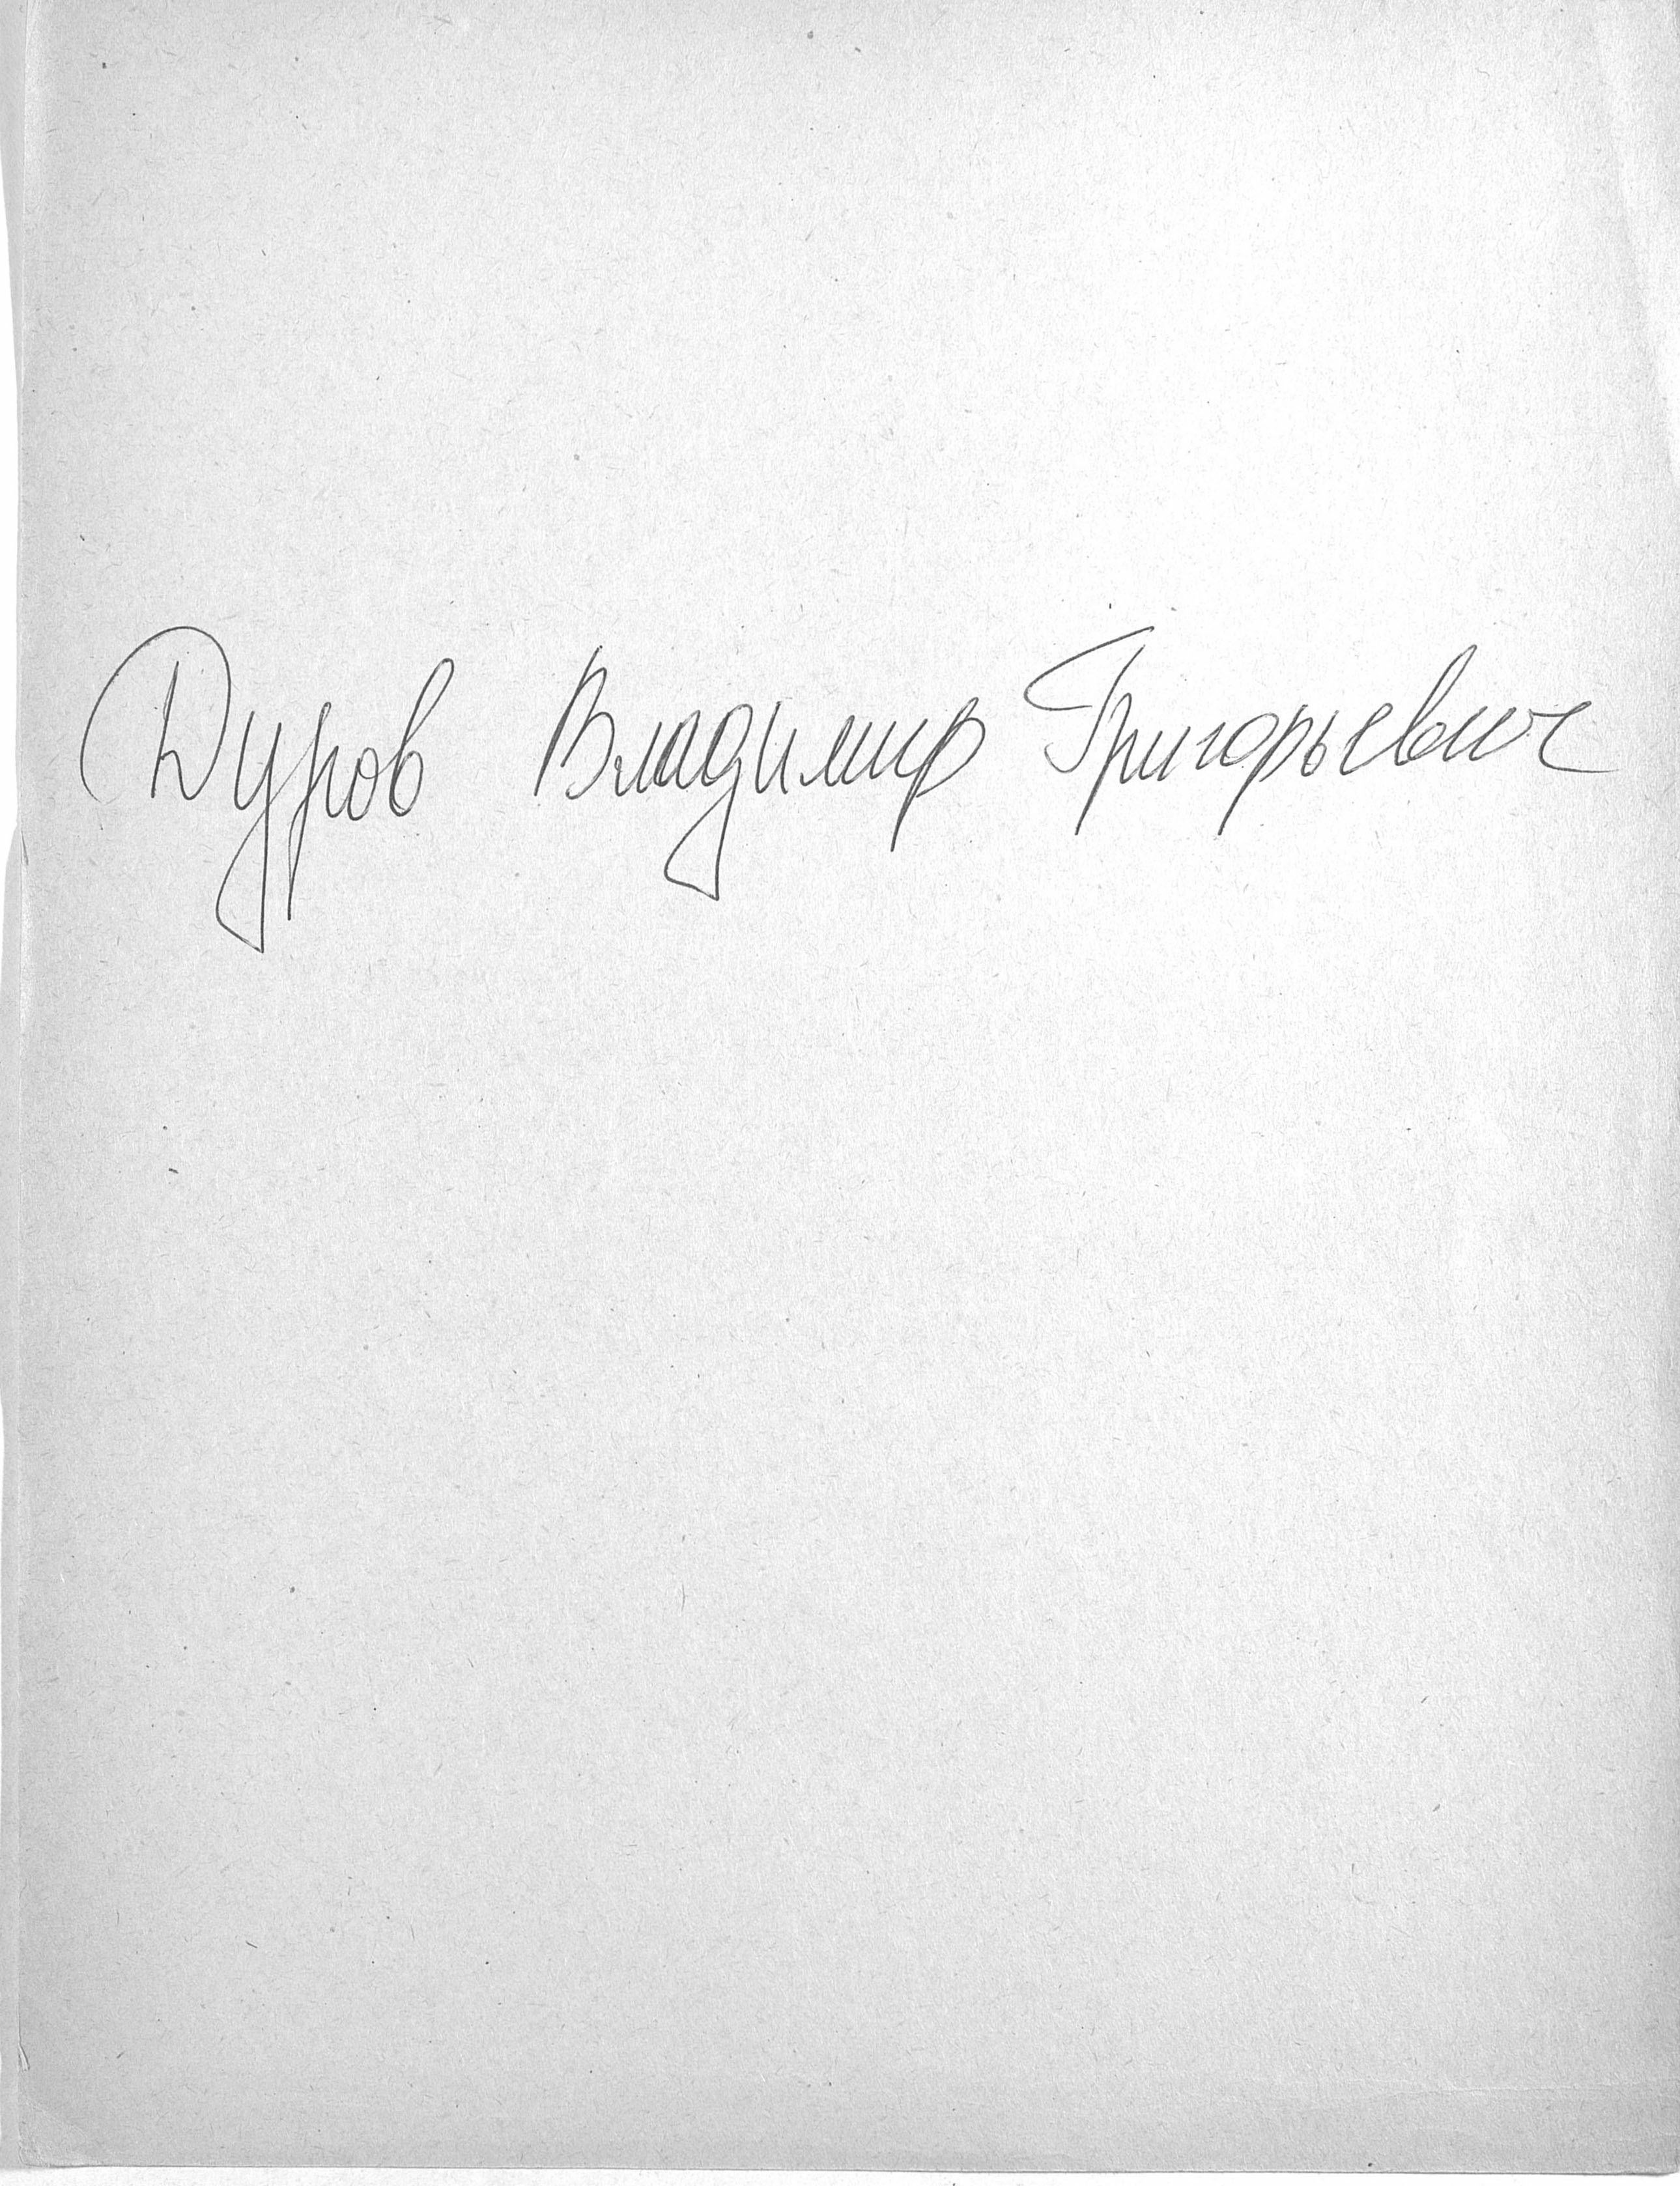 Дуров Владимир Григорьевич